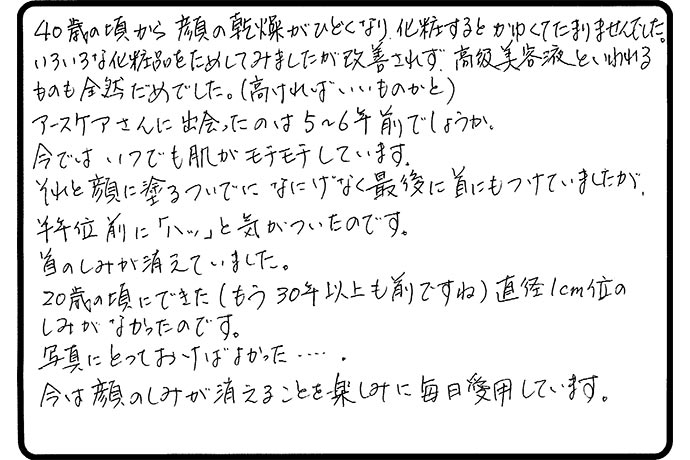 40歳の頃から 顔の乾燥がひどくなり、化粧するとかゆくてたまりませんでした。
いろいろな化粧品をためしてみましたが改善されず、高級美容液といわれる
ものも全然だめでした。(高ければいいものかと)
アースケアさんに出会ったのは5〜6年前でしょうか。
今ではいつでも肌がモチモチしています。
それと顔に塗るついでになにげなく最後に首にもつけていましたが、
半年位前に「ハッ」と気がついたのです。
首のしみが消えていました。
20歳の頃にできた(もう30年以上も前ですね)直径1cm位の
しみがなかったのです。
写真にとっておけばよかった‥‥.
今は顔のしみが消えることを楽しみに毎日愛用しています。